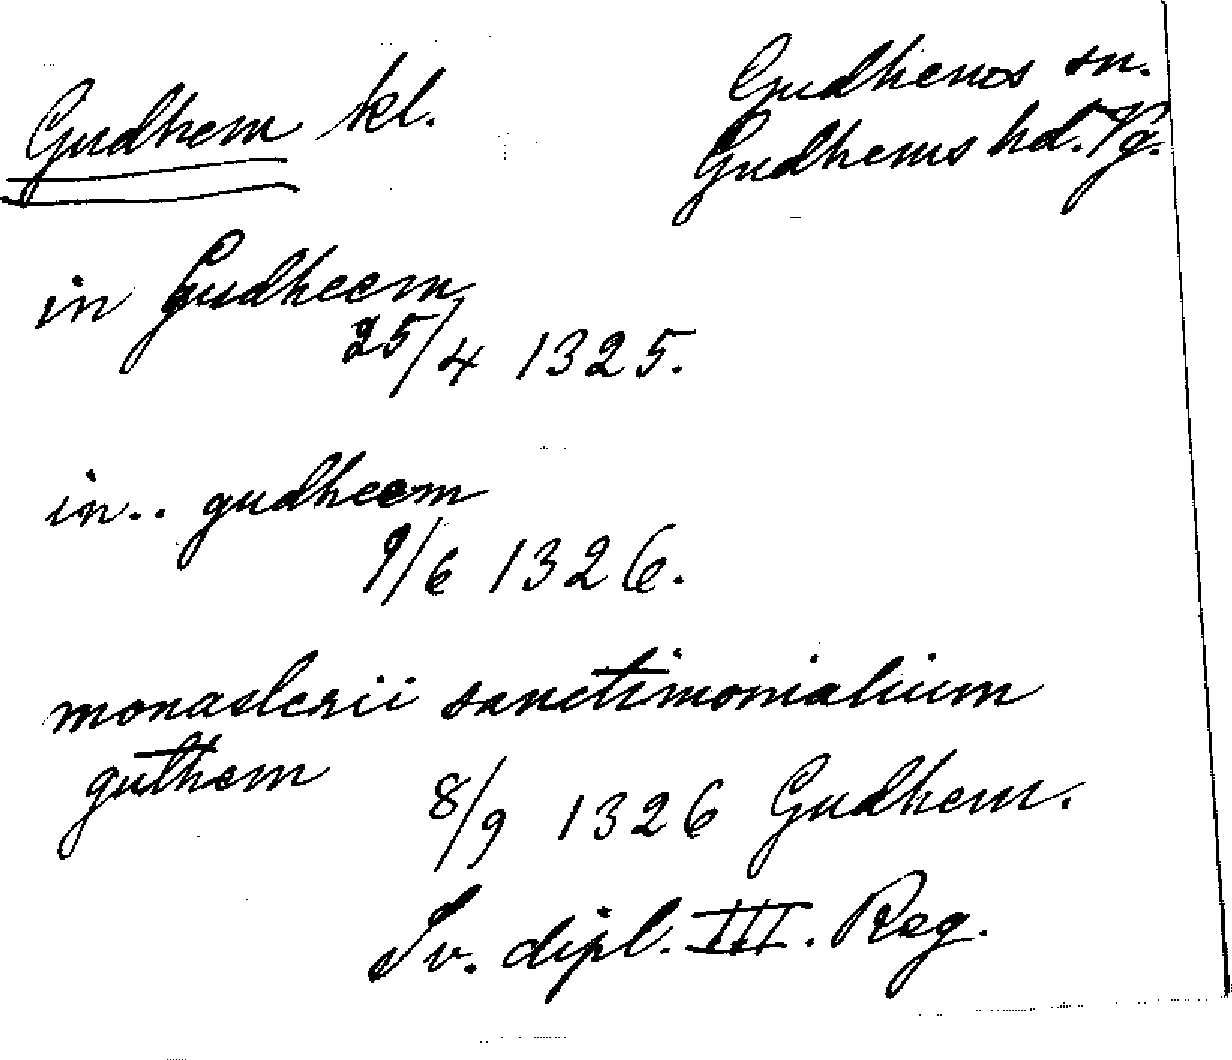 Gudhem kl.
Gudhems sn.
Gudhems hd. Vg.
in Gudheem
25/4 1325.
in.. gudheem
9/6 1326.
monasterii sanctimonialium
guthem
8/9 1326 Gudhem.
Sv. dipl. III. Reg.